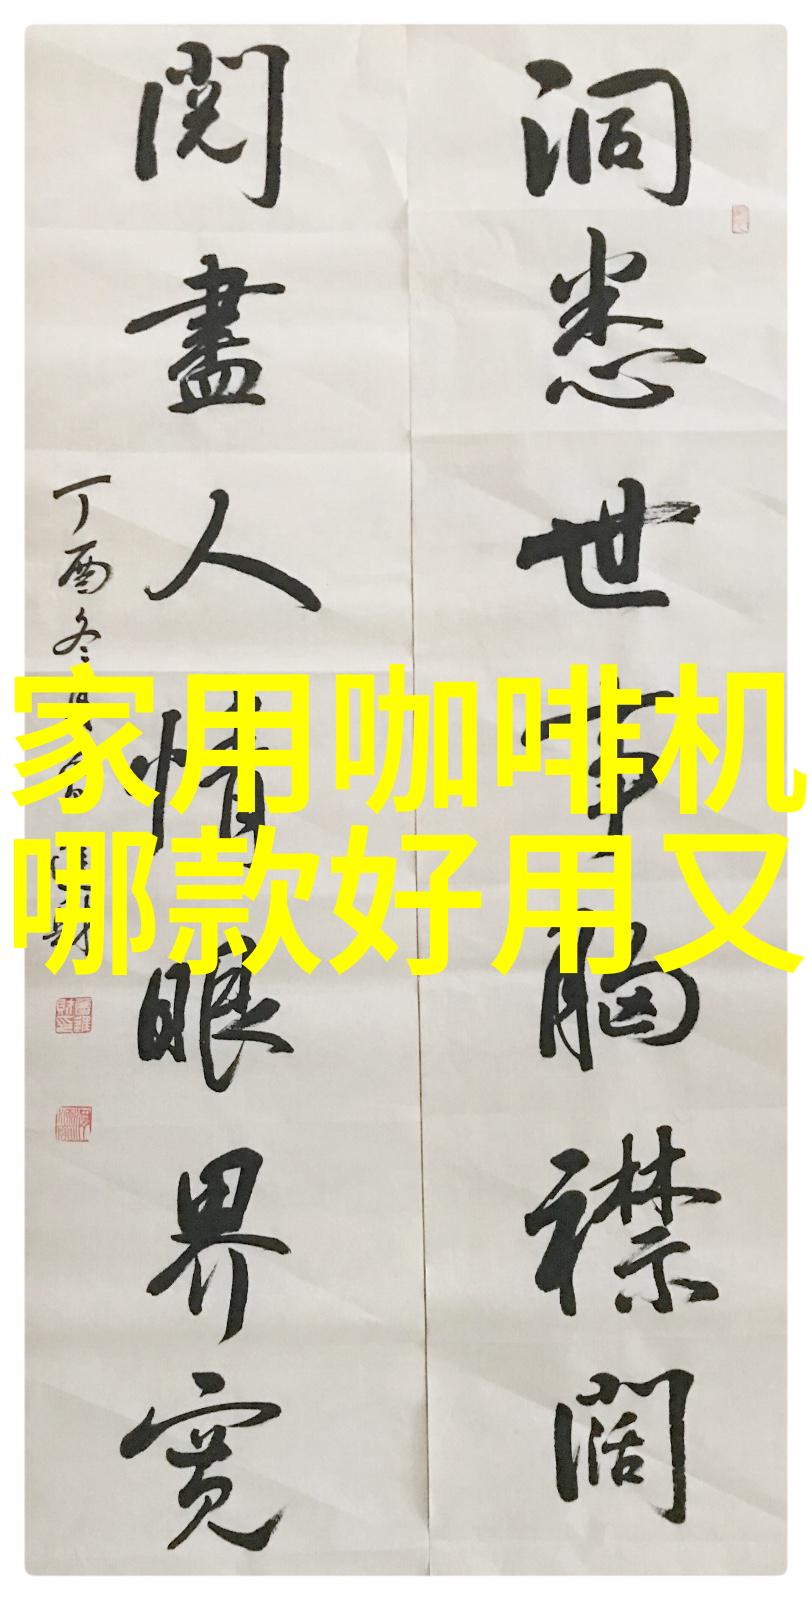 洞悉世事胸襟阔
閱盡人情眼界寬
丁酉冬月
家用咖啡机
哪款好用又